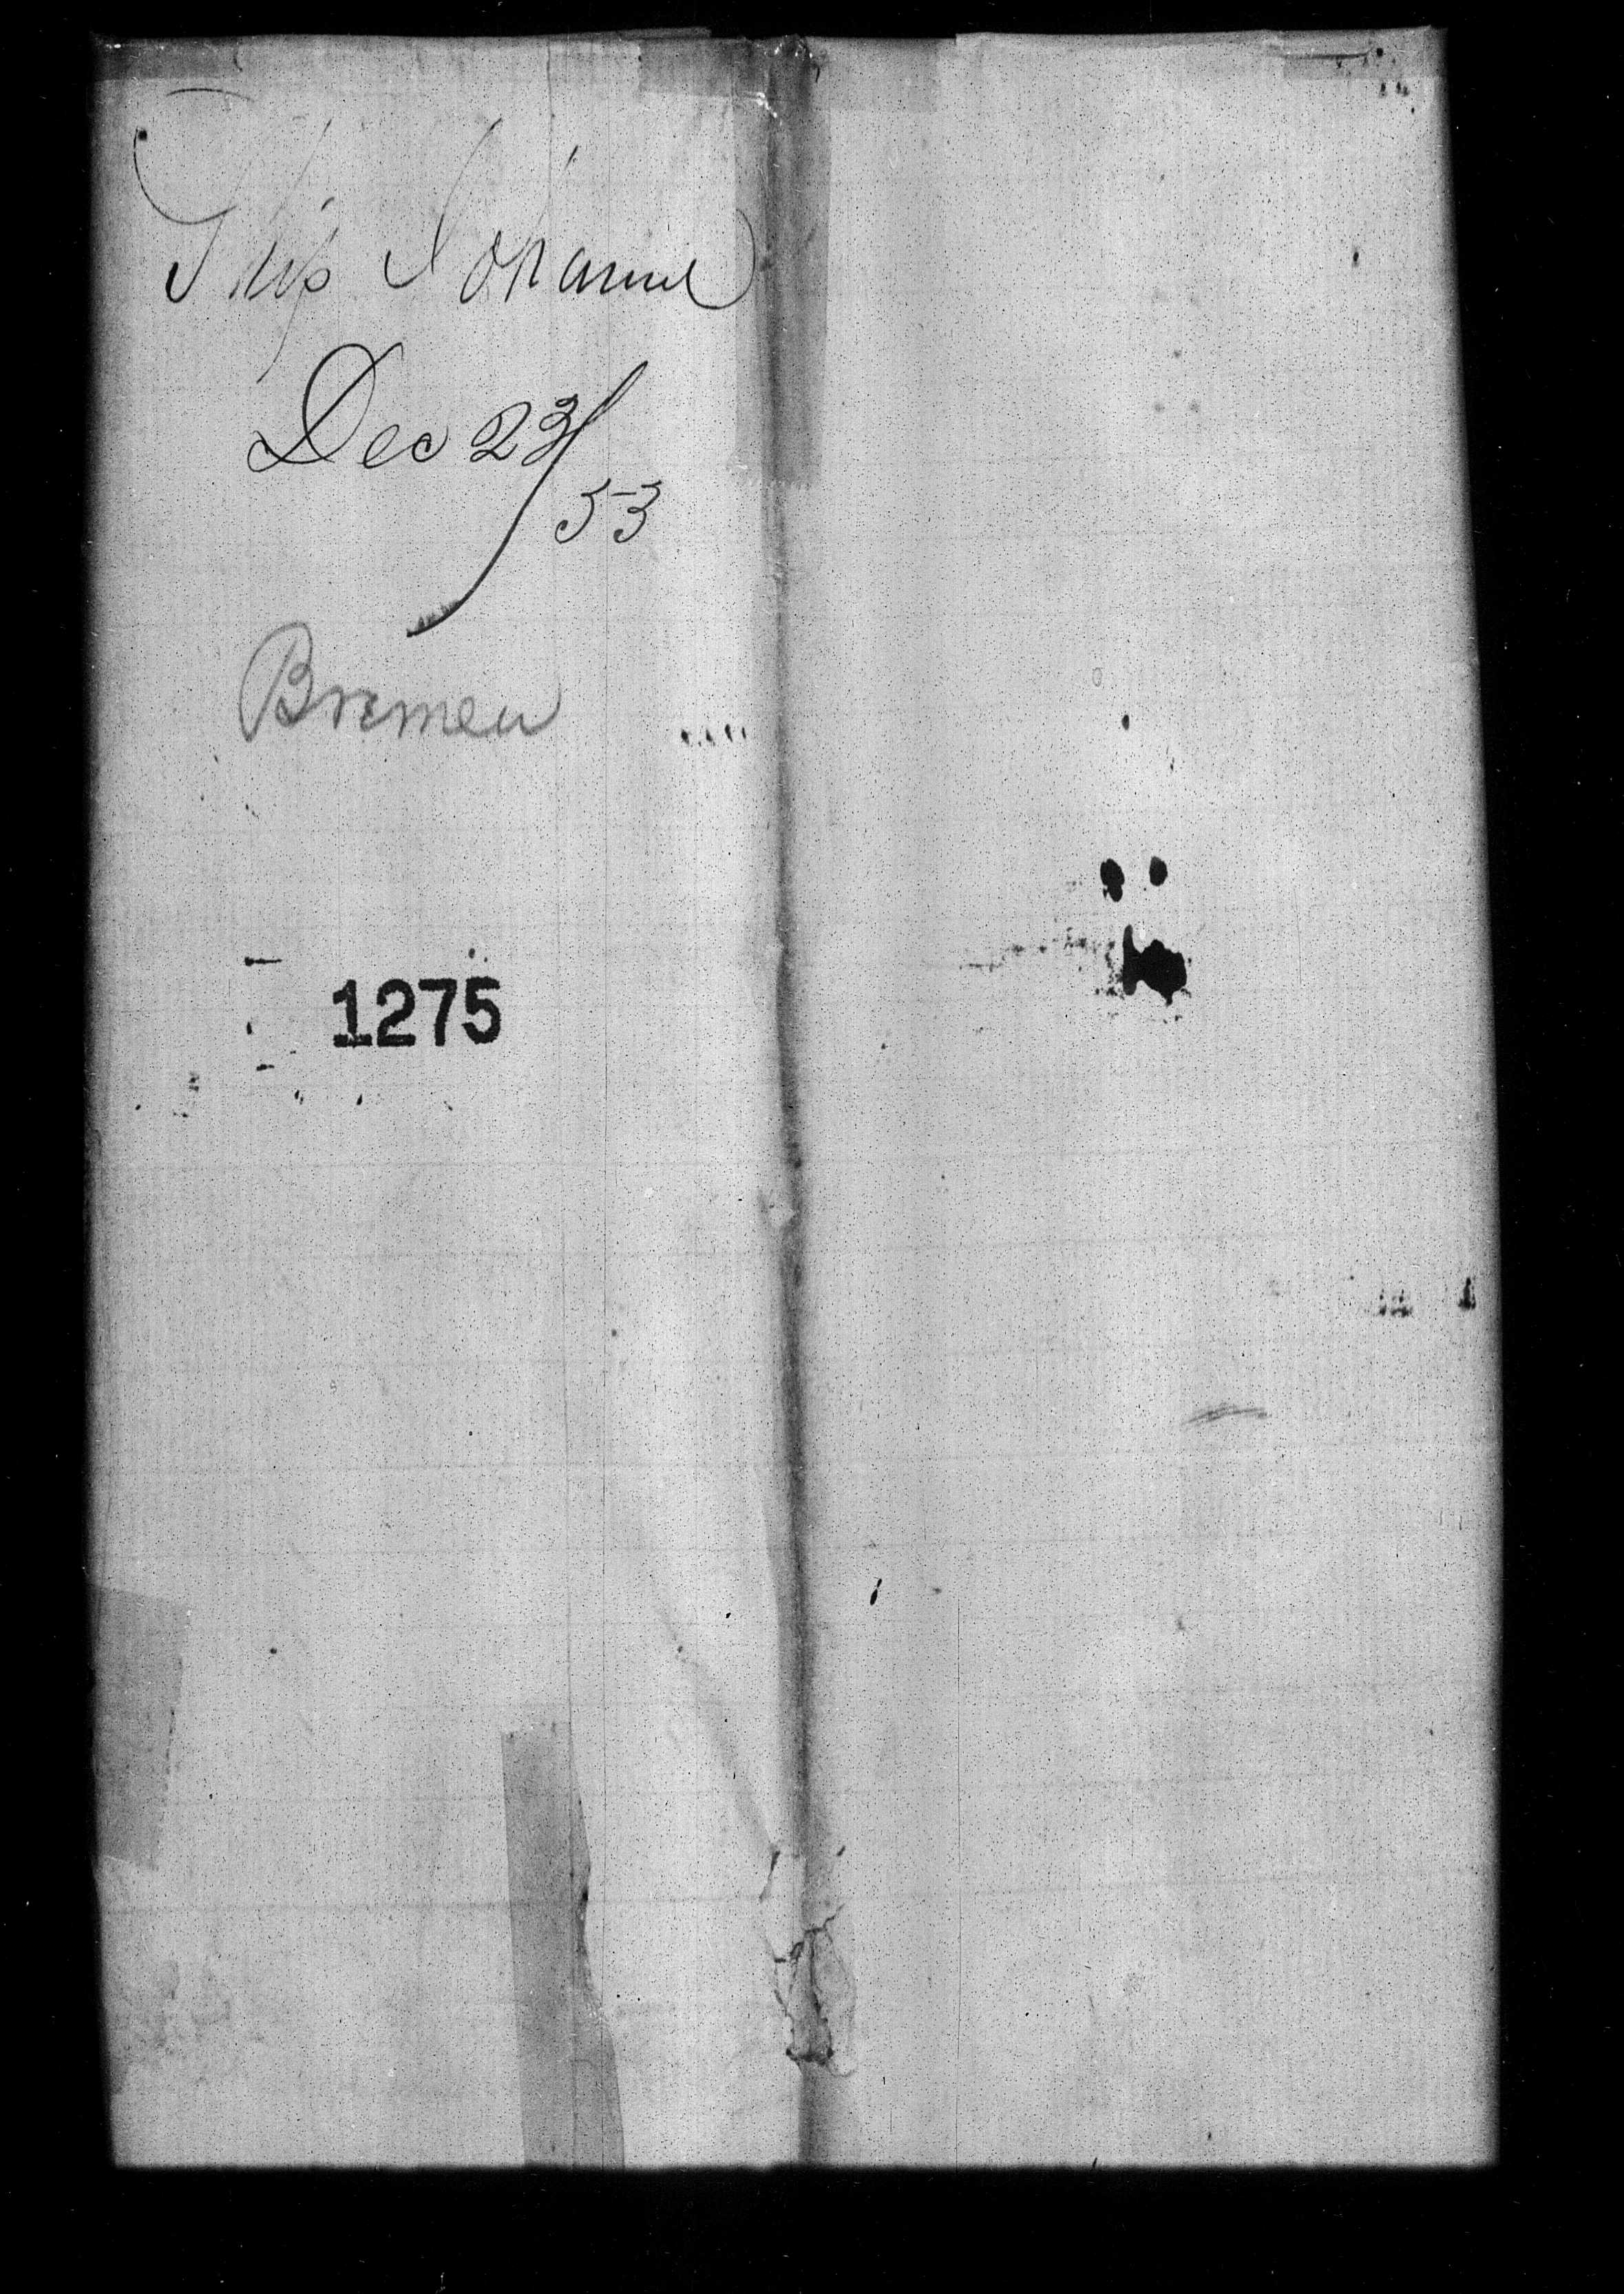 Ship Johanne
Dec 23/
53
Bremen
1275